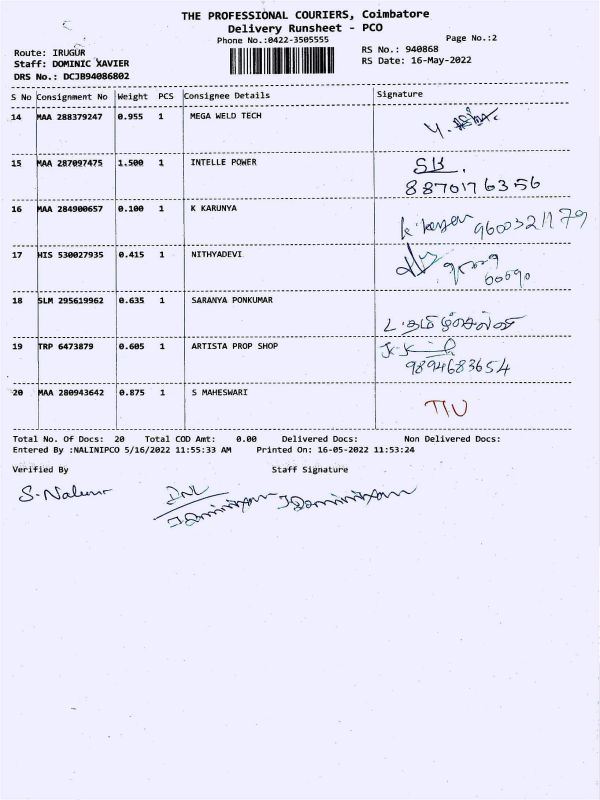 THE PROFESSIONAL COURIERS, Coimbatore
Delivery Runsheet - PCO
Phone No.:0422-3505555
Page No.:2
Route: IRUGUR
RS No.: 940868
Staff: DOMINIC XAVIER
RS Date: 16-May-2022
DRS No.: DCJB94086802
S No Consignment No Weight PCS Consignee Details Signature
14 MAA 288379247 0.955 1 MEGA WELD TECH
15 MAA 287097475 1.500 1 INTELLE POWER SK.
8870176356
16 MAA 284900657 0.100 1 K KARUNYA 9600321179
17 HIS 530027935 0.415 1 NITHYADEVI
18 SLM 295619962 0.635 1 SARANYA PONKUMAR
L. தமிழ்செல்வி
19 TRP 6473879 0.605 1 ARTISTA PROP SHOP
9894683654
20 MAA 280943642 0.875 1 S MAHESWARI
Total No. Of Docs: 20 Total COD Amt: 0.00 Delivered Docs: Non Delivered Docs:
Entered By :NALINIPCO 5/16/2022 11:55:33 AM Printed On: 16-05-2022 11:53:24
Verified By Staff Signature